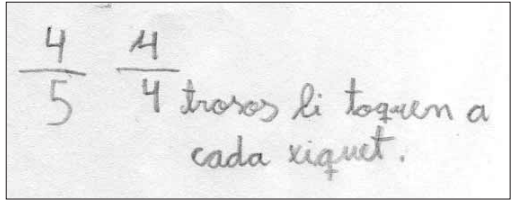 4/5 4/4 trosos li toquen a
cada xiquet.